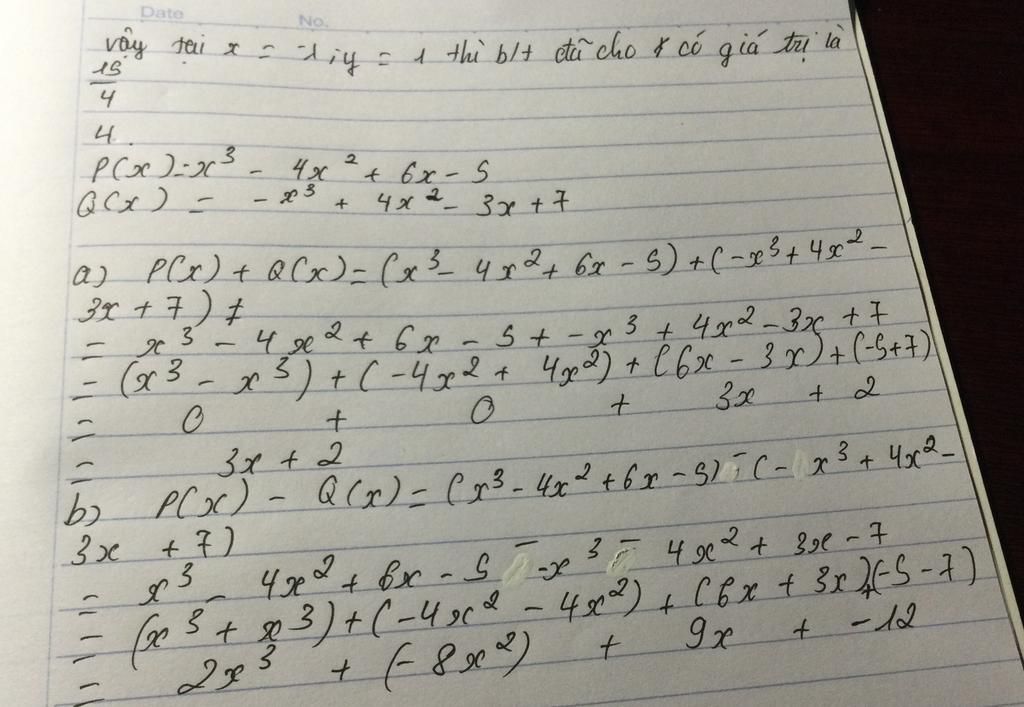 Date No.
vậy tại x = -1 ; y = 1 thì b/t đã cho có giá trị là
15/4
4.
P(x) = x³ - 4x² + 6x - 5
Q(x) = - x³ + 4x² - 3x + 7
a) P(x) + Q(x) = (x³ - 4x² + 6x - 5) + (-x³ + 4x² -
3x + 7)
= x³ - 4x² + 6x - 5 + -x³ + 4x² - 3x + 7
= (x³ - x³) + (-4x² + 4x²) + (6x - 3x) + (-5+7)
= 0 + 0 + 3x + 2
= 3x + 2
b) P(x) - Q(x) = (x³ - 4x² + 6x - 5) - (- x³ + 4x² -
3x + 7)
= x³ - 4x² + 6x - 5 - -x³ - 4x² + 3x - 7
= (x³ + x³) + (-4x² - 4x²) + (6x + 3x) + (-5 - 7)
= 2x³ + (-8x²) + 9x + -12